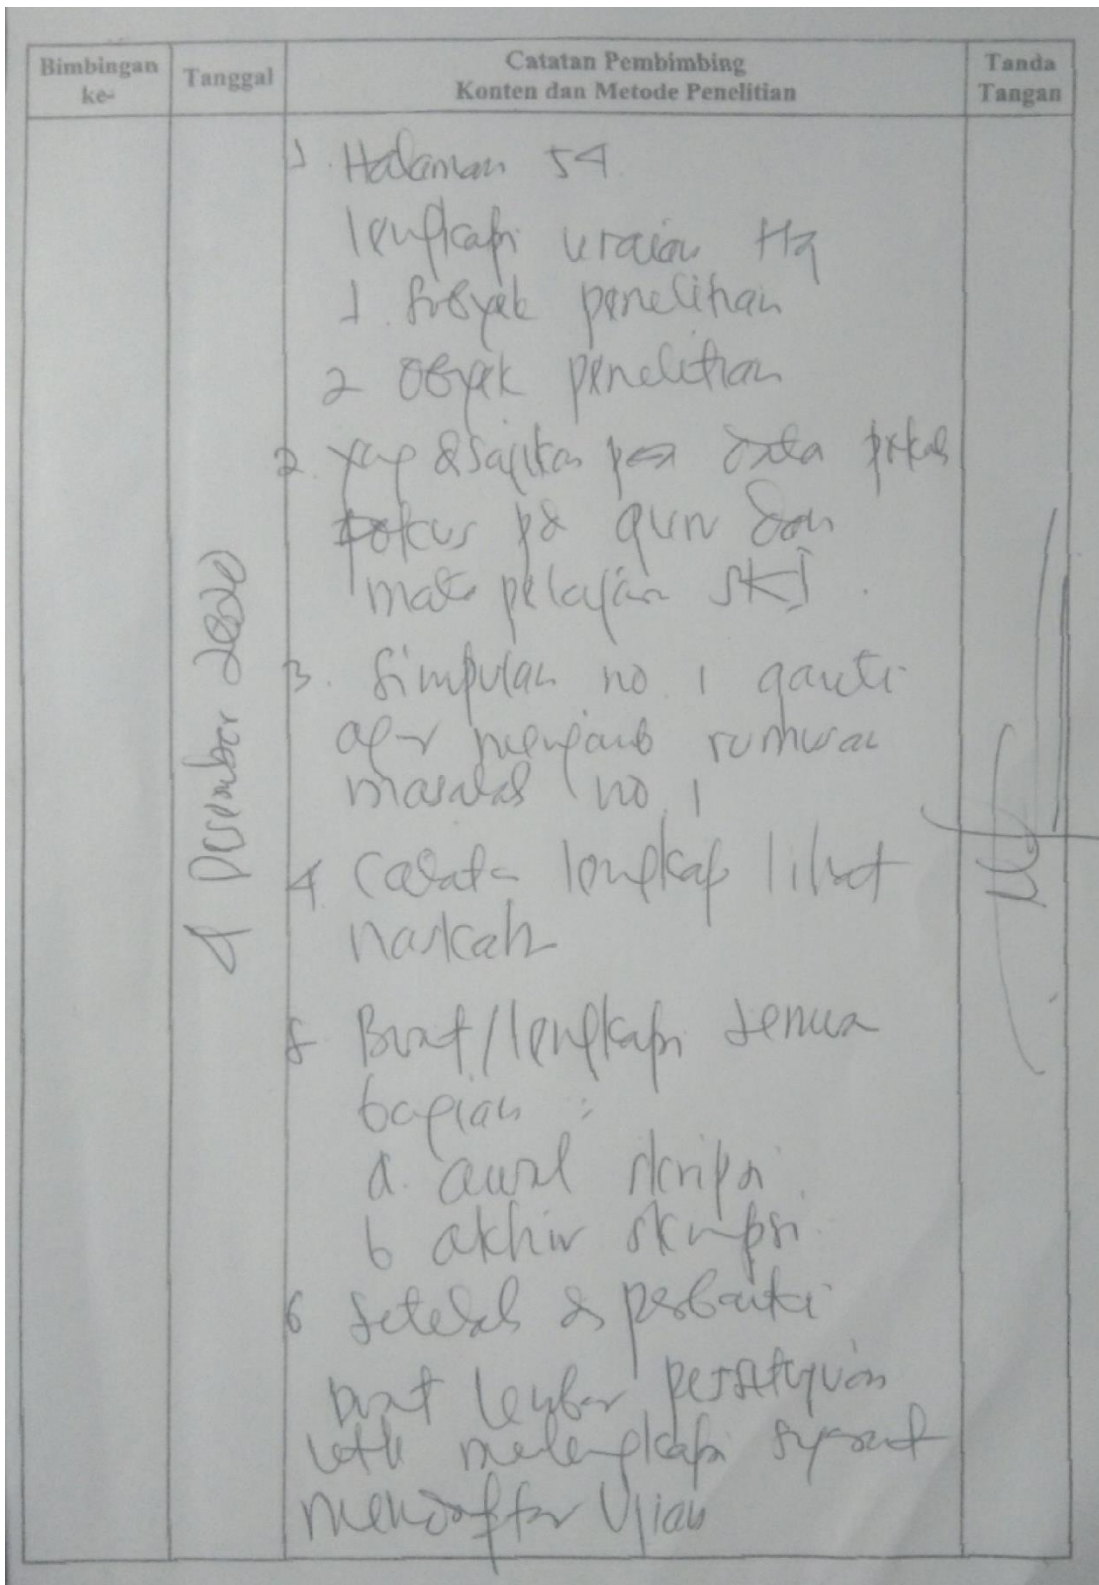 Bimbingan ke-
Tanggal
Catatan Pembimbing
Konten dan Metode Penelitian
Tanda Tangan
4 Desember 2020
1. Halaman 54.
lengkapi uraian ttg
1. Subyek penelitian
2 Obyek penelitian
2. yang disajikan data
fokus pd guru dan
mata pelajaran SKI.
3. Simpulan no. 1 ganti
agar menjawab rumusan
masalah no. 1
4. Catatan lengkap lihat
naskah
5. Buat/lengkapi semua
bagian :
a. awal skripsi.
b akhir skripsi.
6 Setelah di perbaiki
buat lembar persetujuan
utk melengkapi syarat
mendaftar Ujian